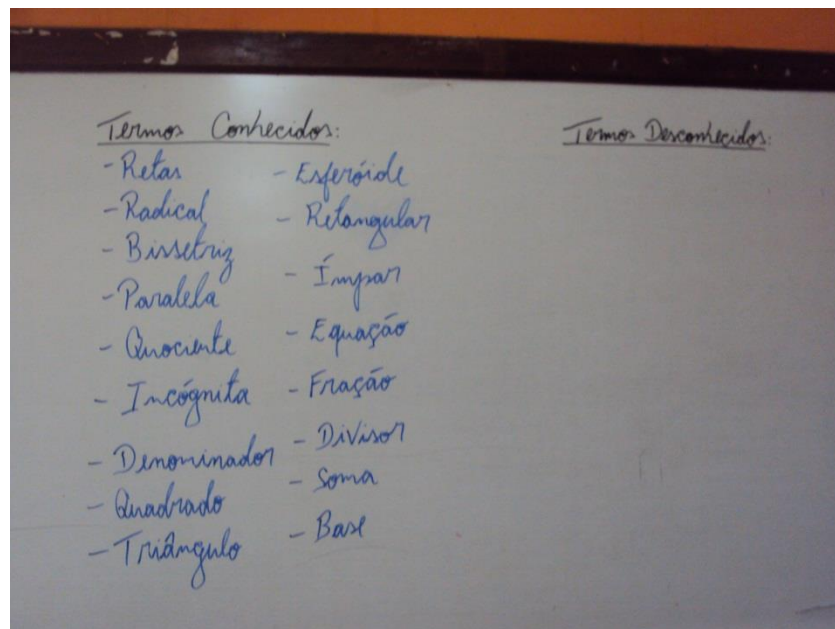 Termos Conhecidos:
- Retas
- Radical
- Bissetriz
- Paralela
- Quociente
- Incógnita
- Denominador
- Quadrado
- Triângulo
- Esferóide
- Retangular
- Ímpar
- Equação
- Fração
- Divisor
- Soma
- Base
Termos Desconhecidos: